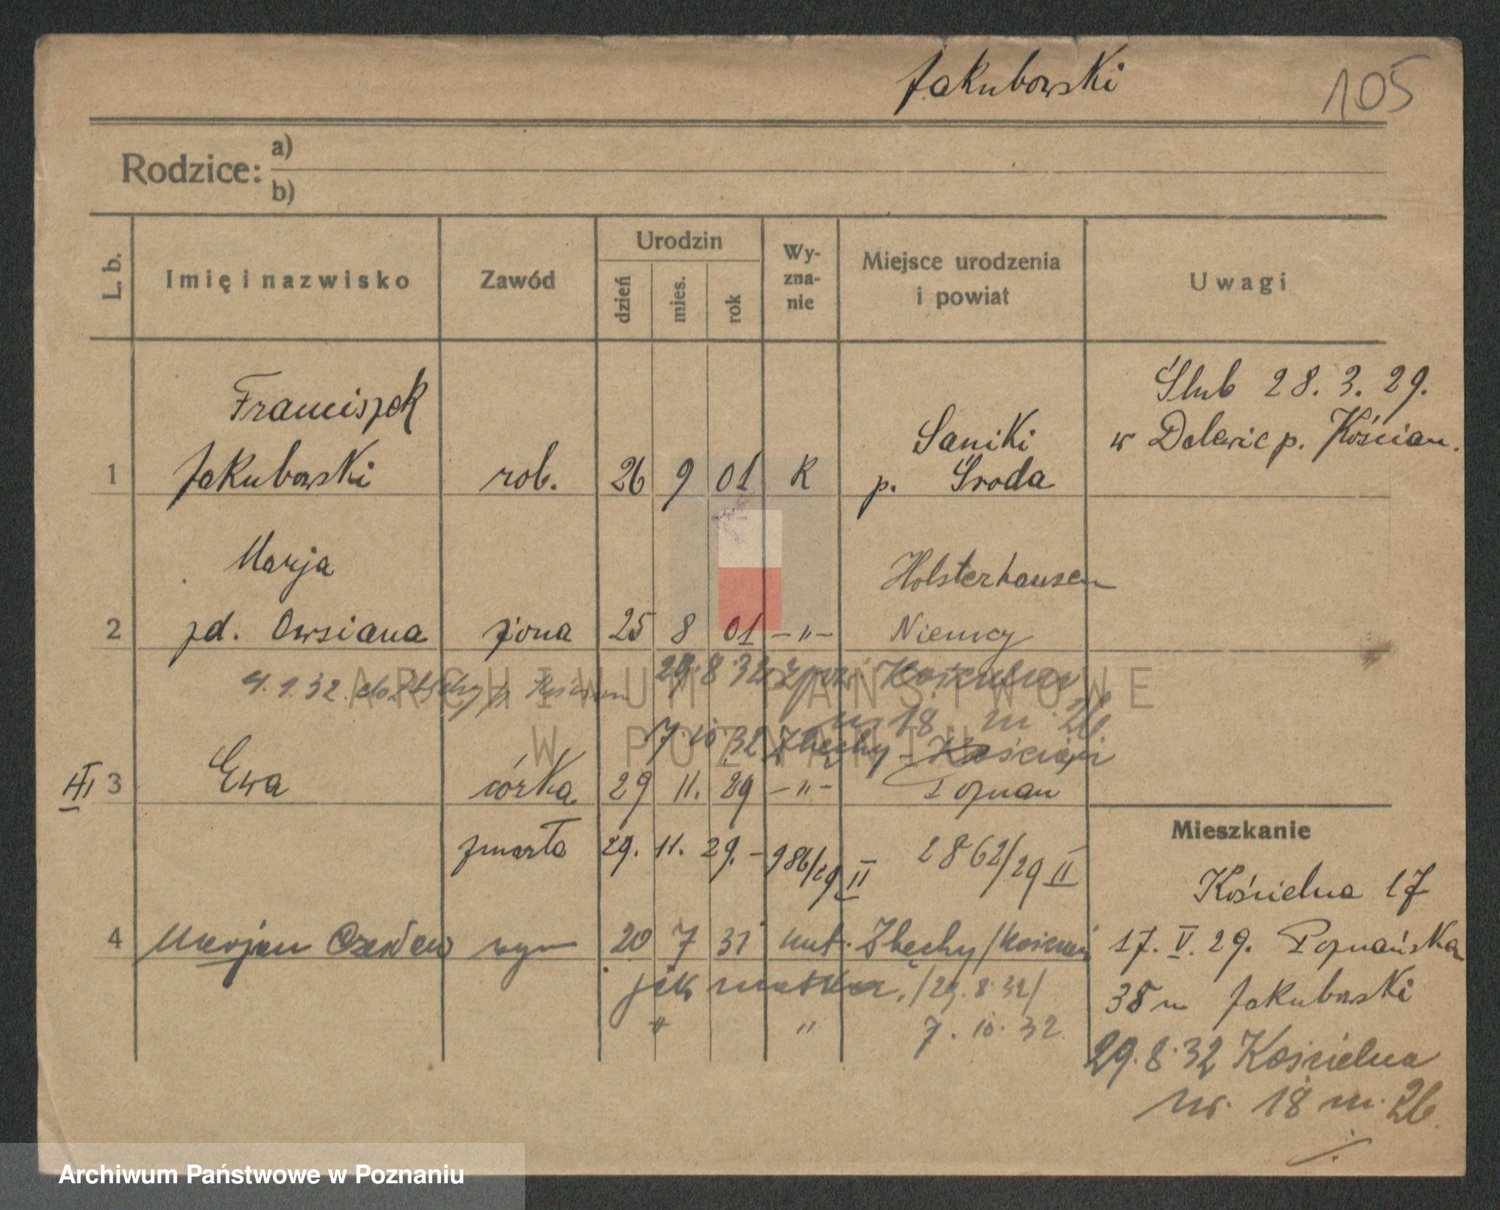 Jakubowski 105
Rodzice: a)
b)
L. b. Imię i nazwisko Zawód Urodzin dzień mies. rok Wyznanie Miejsce urodzenia i powiat Uwagi
Ślub 28. 3. 29.
w Dalewie p. Kościan.
Franciszek
1 Jakubowski rob. 26 9 01 K Saniki
p. Środa
Marja
2 zd. Owsiana żona 25 8 01 -"- Holsterhausen
Niemcy
4. 1. 32. do Zbęchy p. Kościan
29. 8. 32 z pow. Kościelna
nr 18 m. 26
7. 10. 32 Zbęchy - Kościan
III 3 Ewa córka 29 11. 29 -"- Poznań
zmarła 29. 11. 29. - 986/29 II 2862/29 II
4 Marjan Czesław syn 20 7 31 Zbęchy /Kościan
jak matka /29. 8. 32/
" " 7. 10. 32
Mieszkanie
Kościelna 17
17. V. 29. Poznańska
38 m Jakubowski
29. 8. 32 Kościelna
nr. 18 m. 26.
ARCHIWUM PAŃSTWOWE
W POZNANIU
Archiwum Państwowe w Poznaniu